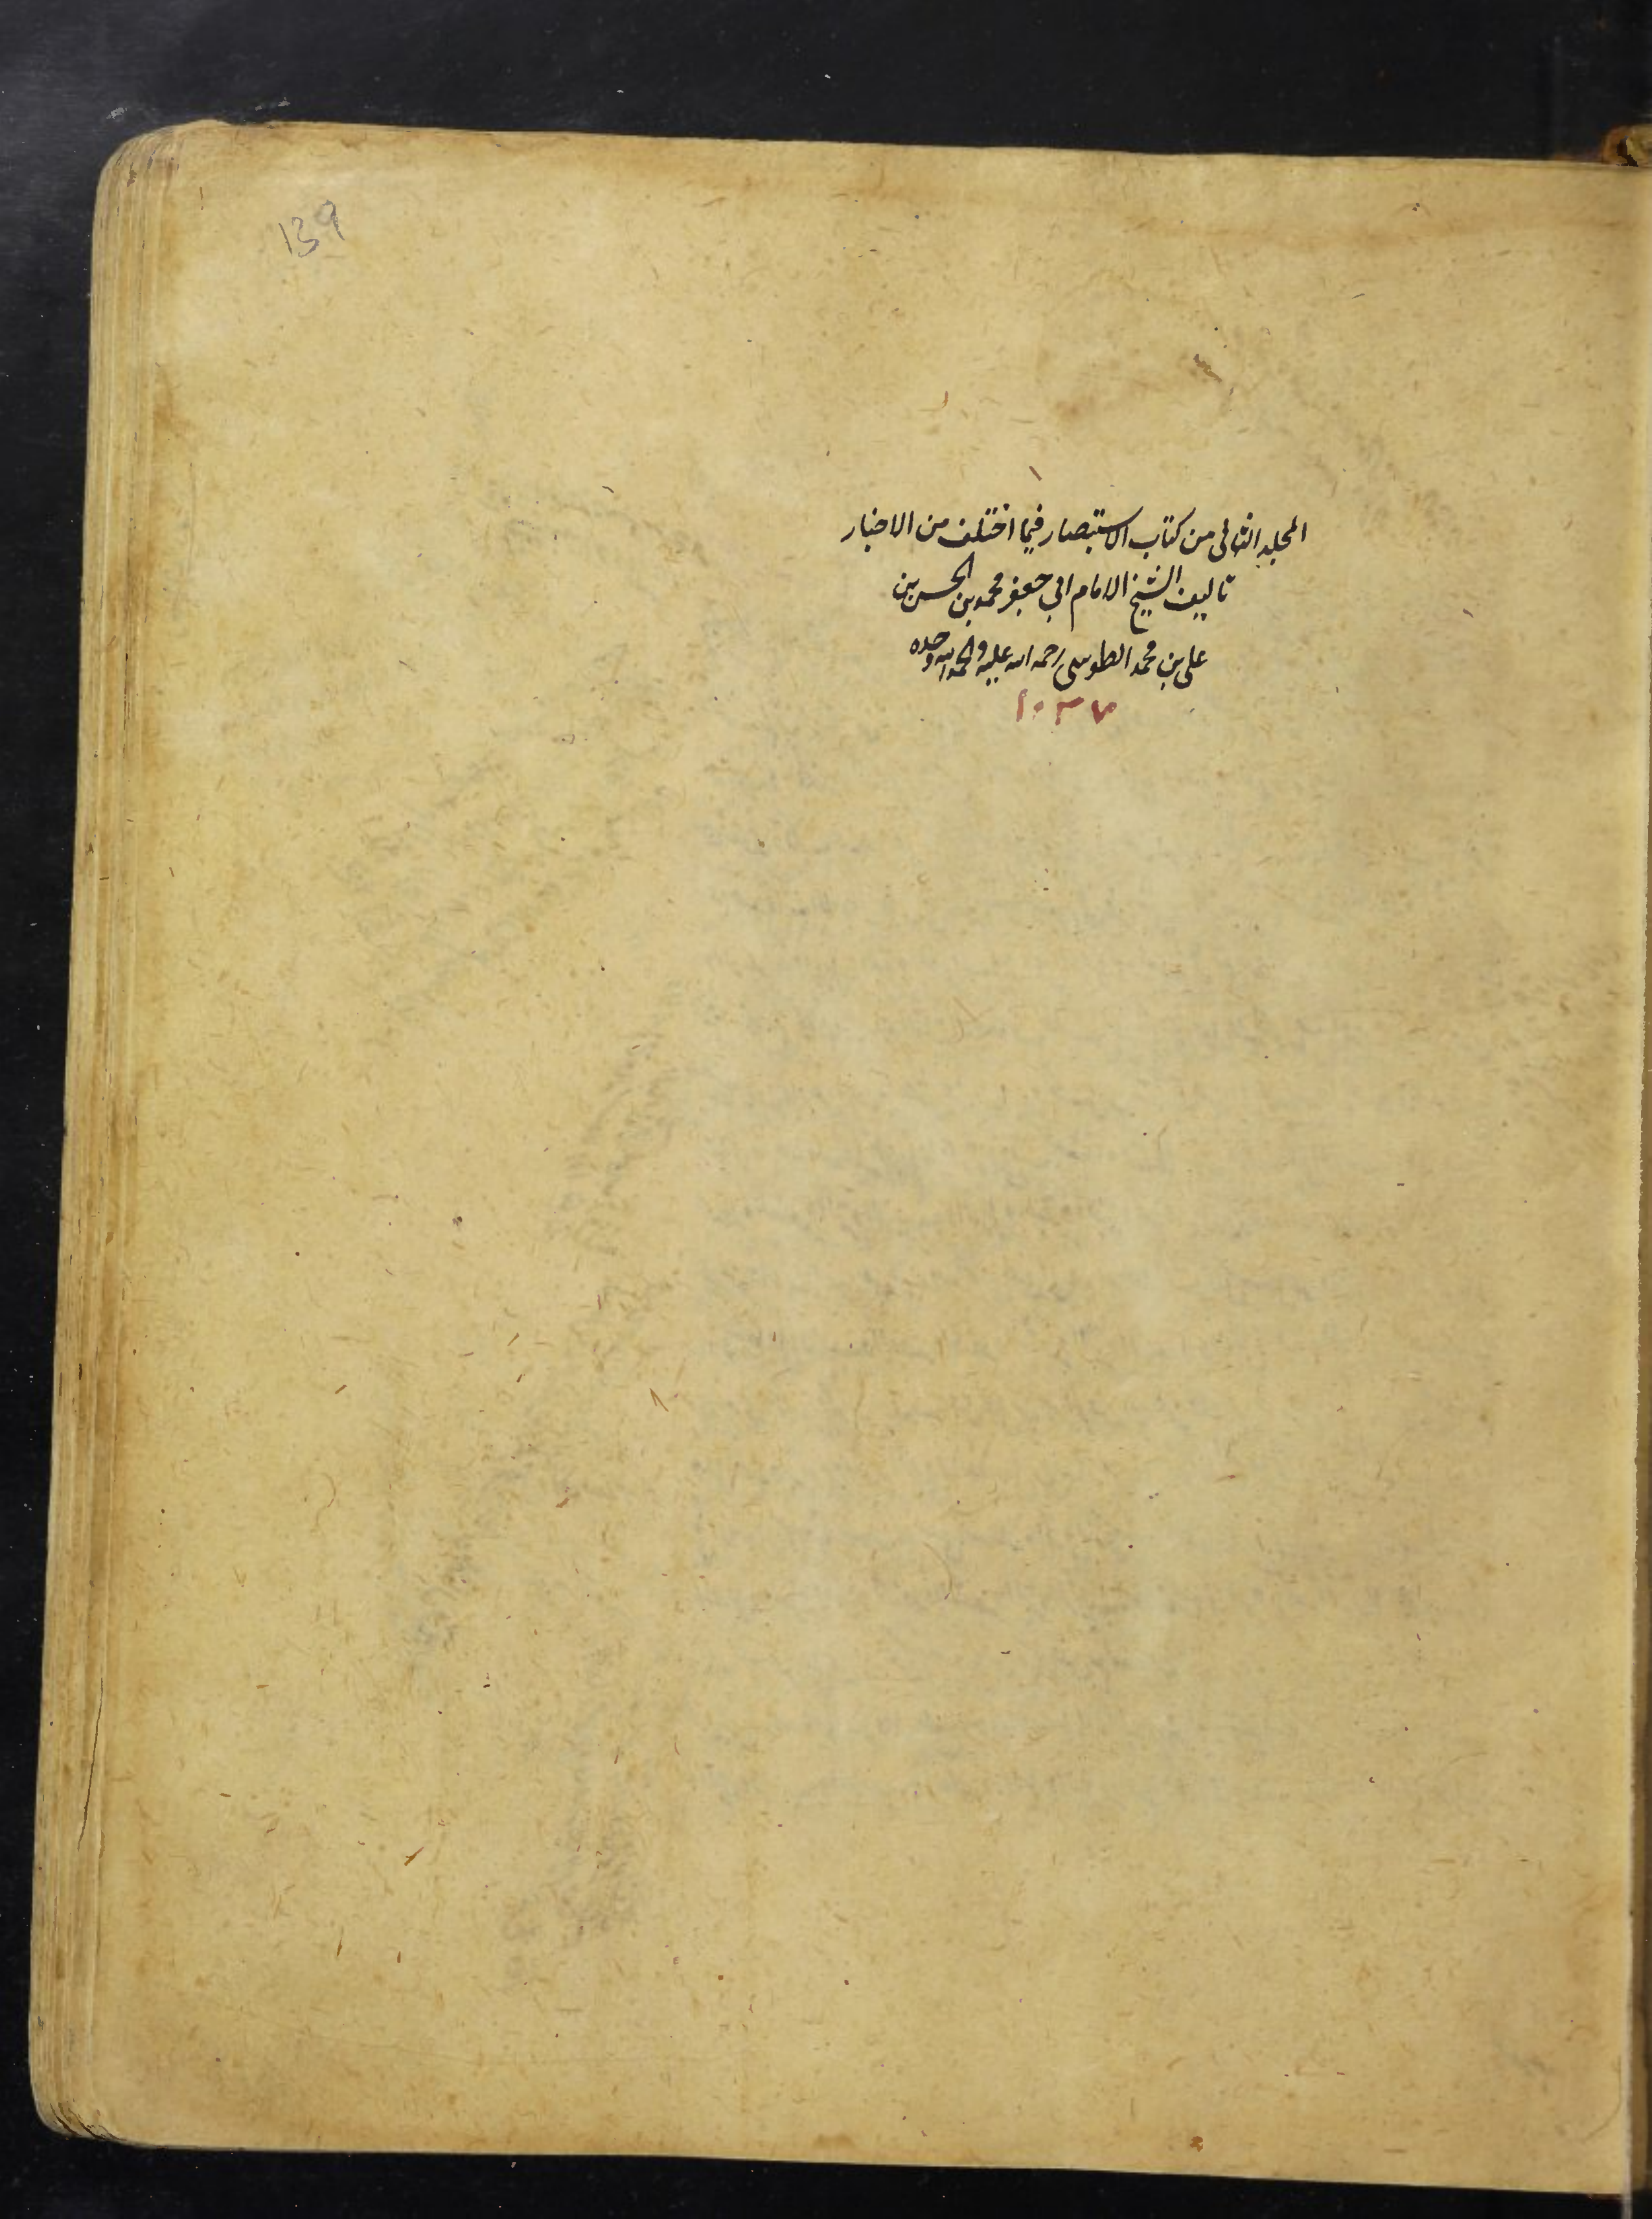 139
المجلد الثانى من كتاب الاستبصار فيما اختلف من الاخبار
تاليف الشيخ الامام ابي جعفر محمد بن الحسن بن
على بن محمد الطوسى رحمه الله عليه والحمد لله وحده
١٠٣٧